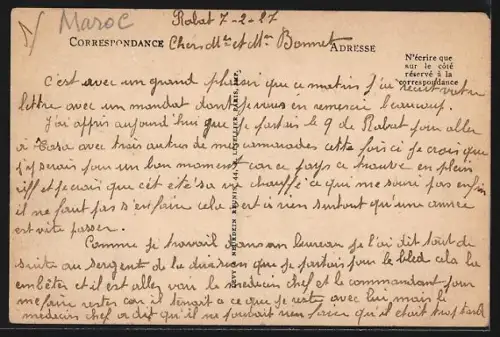 Maroc
Rabat 7-2-27
CORRESPONDANCE Chers Mr et Mme Bonnet ADRESSE
N'écrire que
sur le côté
réservé à la
correspondance
C'est avec un grand plaisir que ce matin j'ai recu votre
lettre avec un mandat dont je vous en remercie beaucoup.
J'ai appris aujourd'hui que je partais le 9 de Rabat pour aller
à Taza avec trois autres de mes camarades cette fois ci je crois que
j'y serais pour un bon moment car ce pays ce trouve en plein
riff et je crois que cet été sa va chauffé ce que me souri pas enfin
il ne faut pas s'en faire cela sert à rien surtout qu'une année
est vite passer.
Comme je travail dans un bureau je l'ai dit tout de
suite au sergent de la division que je partais pour le bled cela la
embêter et il est aller voir le médecin chef et le commandant pour
me faire rester car il tenait a ce que je reste avec lui mais le
médecin chef a dit qu'il ne pouvait rien faire qu'il était trop tard
LÉVY ET NEURDEIN RÉUNIS, 44, RUE LETELLIER, PARIS, IMP.